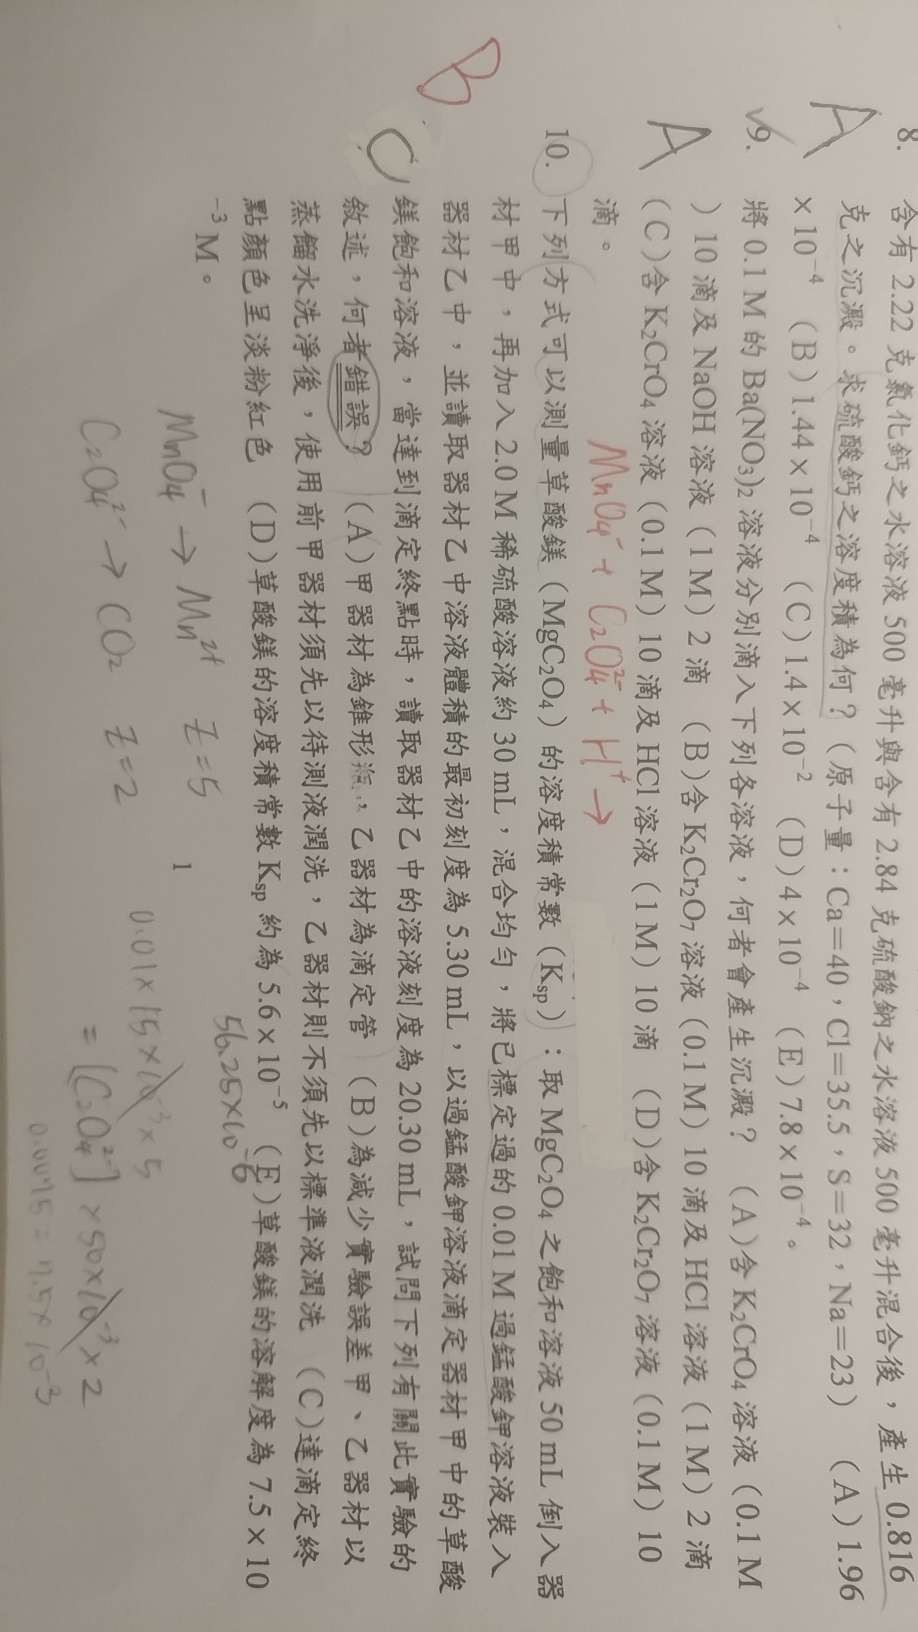 8. 含有 2.22 克氯化鈣之水溶液 500 毫升與含有 2.84 克硫酸鈉之水溶液 500 毫升混合後，產生 0.816
克之沉澱。求硫酸鈣之溶度積為何？（原子量：Ca＝40，Cl＝35.5，S＝32，Na＝23）（A）1.96
A
×10⁻⁴ （B）1.44×10⁻⁴ （C）1.4×10⁻² （D）4×10⁻⁴ （E）7.8×10⁻⁴。
✓9. 將 0.1 M 的 Ba(NO₃)₂ 溶液分別滴入下列各溶液，何者會產生沉澱？（A）含 K₂CrO₄ 溶液（0.1 M
）10 滴及 NaOH 溶液（1M）2 滴 （B）含 K₂Cr₂O₇ 溶液（0.1 M）10 滴及 HCl 溶液（1 M）2 滴
A
（C）含 K₂CrO₄ 溶液（0.1 M）10 滴及 HCl 溶液（1 M）10 滴 （D）含 K₂Cr₂O₇ 溶液（0.1 M）10
滴。
MnO₄⁻ + C₂O₄²⁻ + H⁺ →
10. 下列方式可以測量草酸鎂（MgC₂O₄）的溶度積常數（Ksp）：取 MgC₂O₄ 之飽和溶液 50 mL 倒入器
材甲中，再加入 2.0 M 稀硫酸溶液約 30 mL，混合均勻，將已標定過的 0.01 M 過錳酸鉀溶液裝入
B
器材乙中，並讀取器材乙中溶液體積的最初刻度為 5.30 mL，以過錳酸鉀溶液滴定器材甲中的草酸
C
鎂飽和溶液，當達到滴定終點時，讀取器材乙中的溶液刻度為 20.30 mL，試問下列有關此實驗的
敘述，何者錯誤？（A）甲器材為錐形瓶，乙器材為滴定管 （B）為減少實驗誤差甲、乙器材以
蒸餾水洗淨後，使用前甲器材須先以待測液潤洗，乙器材則不須先以標準液潤洗 （C）達滴定終
點顏色呈淡粉紅色 （D）草酸鎂的溶度積常數 Ksp 約為 5.6×10⁻⁵ （E）草酸鎂的溶解度為 7.5×10
⁻³ M。
56.25×10⁻⁶
MnO₄⁻ → Mn²⁺ Z=5
1
C₂O₄²⁻ → CO₂ Z=2
0.01×15×10⁻³×5
= [C₂O₄²⁻]×50×10⁻³×2
0.0075 = 7.5×10⁻³